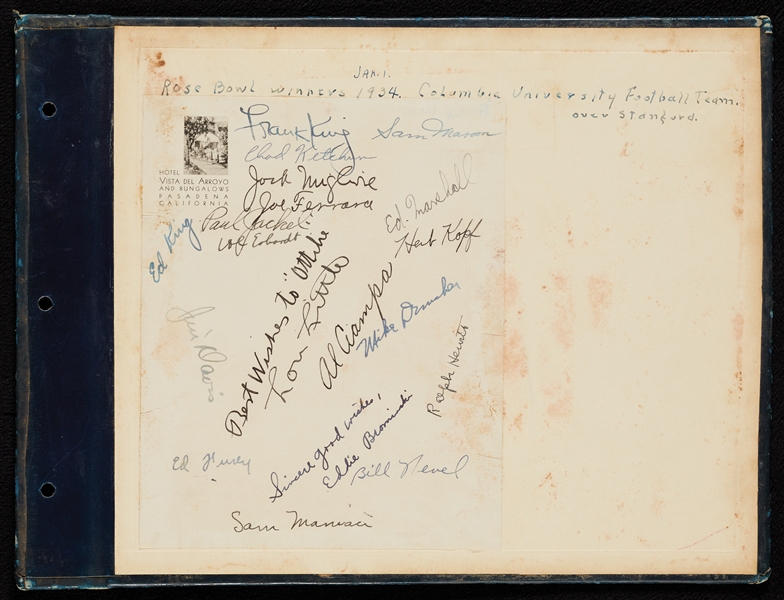 JAN. 1.
ROSE BOWL WINNERS 1934. COLUMBIA UNIVERSITY FOOTBALL TEAM.
over Stanford.
Frank King
Sam Mason
Chad Ketchum
HOTEL
VISTA DEL ARROYO
AND BUNGALOWS
PASADENA
CALIFORNIA
Jock McGlire
Joe Ferrara
Ed. Marshall
Paul Jackel
Herb Kopf
Ed King
Best Wishes to "Mike"
Lou Little
Al Ciampa
Mike Demshar
Jim Davis
Ralph Hewitt
Sincere good wishes,
Eddie Brominski
Ed Furey
Bill Nevel
Sam Maniaci